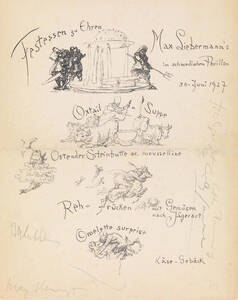 Festessen zu Ehren
Max Liebermann's
im schwedischen Pavillon
30. Juni 1927
Oxtail Suppe
Ostender Steinbutte sc. mousseline
Reh-Rücken mit Gemüsen
nach Jägerart
Omelette surprise
Käse-Gebäck